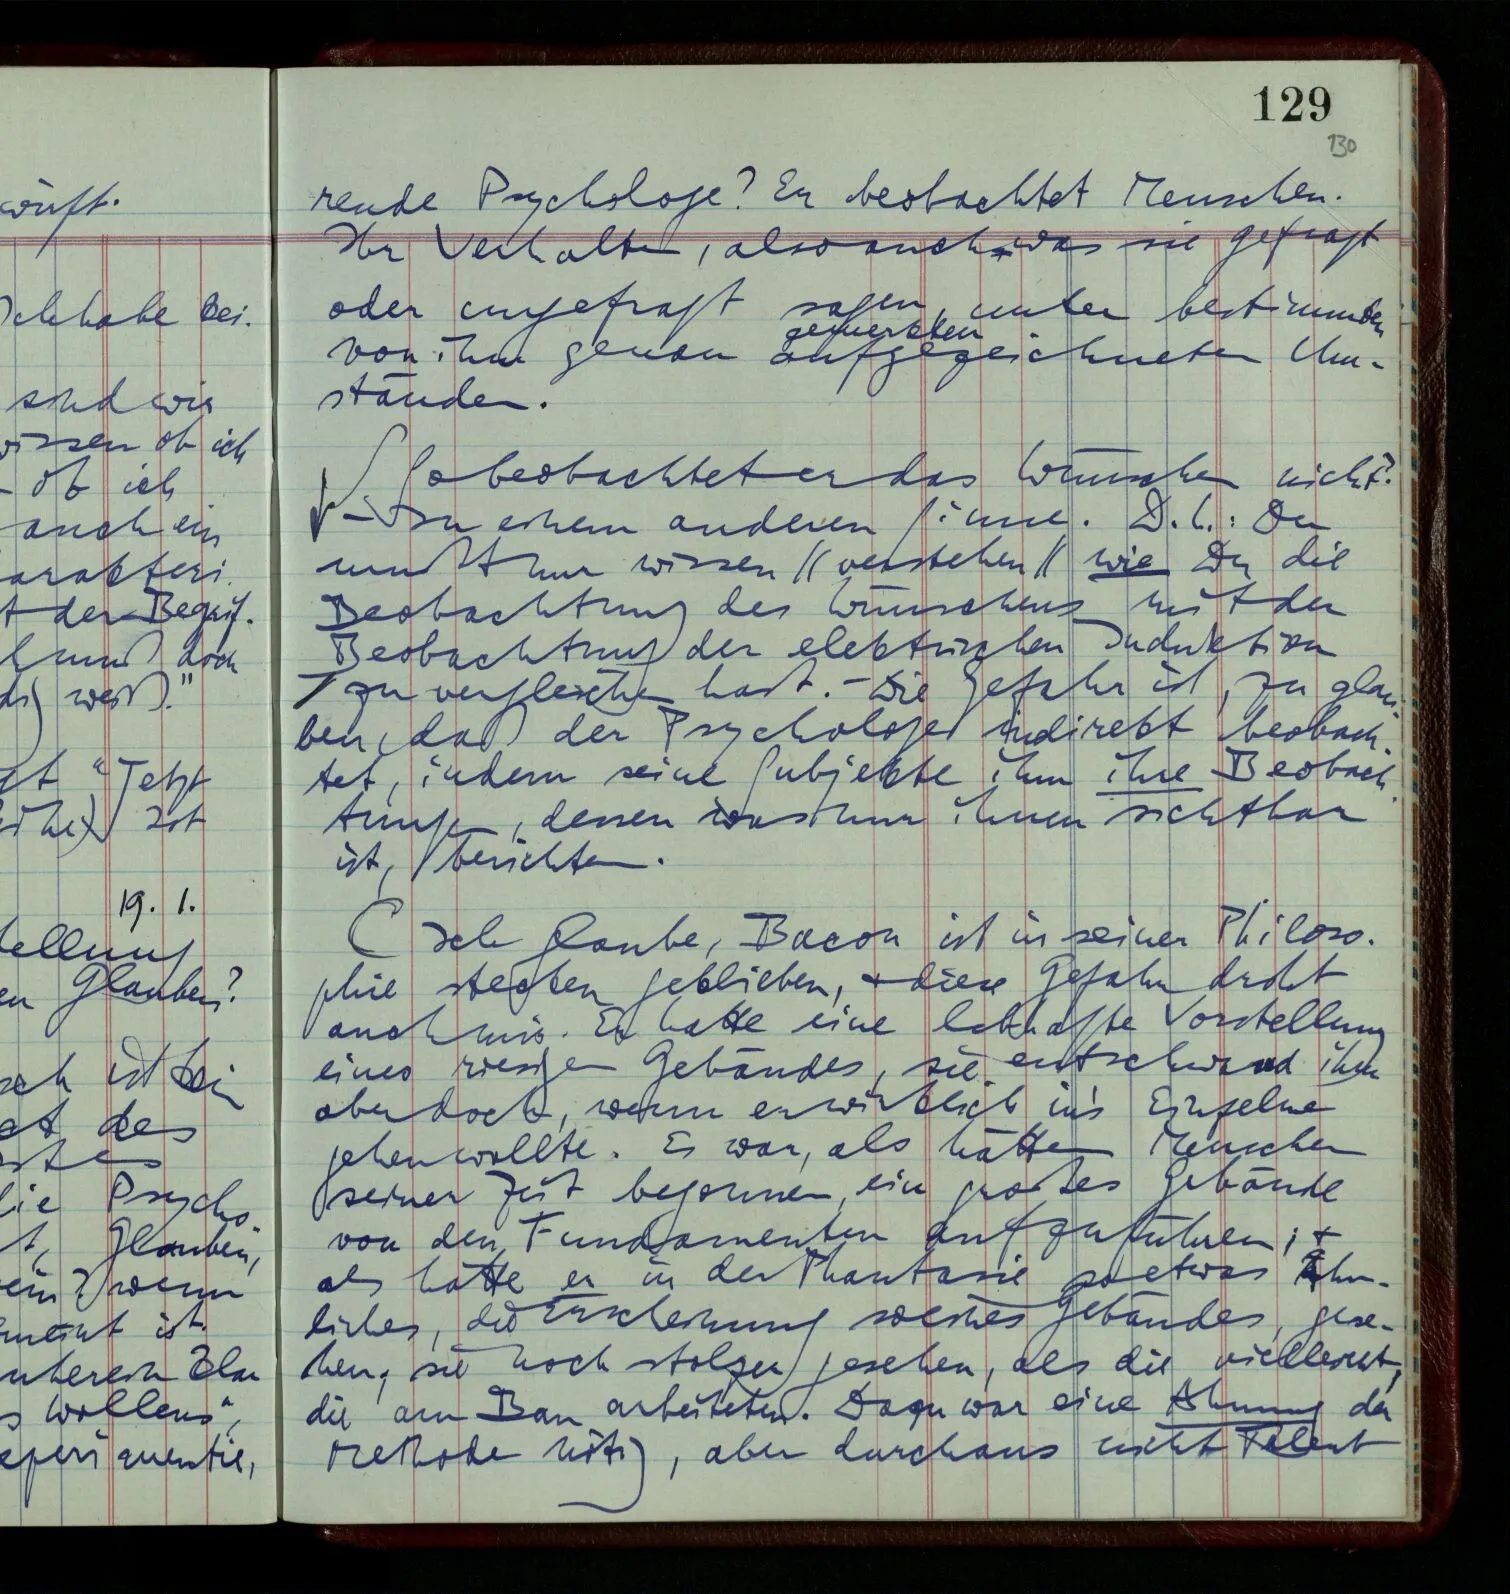 129
130
rende Psychologe? Er beobachtet Menschen.
Ihr Verhalten, also auch was sie gefragt
oder ungefragt sagen, unter bestimmten
gemerkten
von ihm genau aufgezeichneten Um-
ständen.
So beobachtet er das Wünschen nicht?
– In einem anderen Sinne. D.h.: Du
mußt nur wissen // verstehen // wie Du die
Beobachtung des Wünschens mit der
Beobachtung der elektrischen Induktion
zu vergleichen hast. – Die Gefahr ist, zu glau-
ben, daß der Psychologe indirekt beobach-
tet, indem seine Subjekte ihm ihre Beobach-
tungen, dessen was nur ihnen sichtbar
ist, berichten.
Ich glaube, Bacon ist in seiner Philoso-
phie stecken geblieben, + diese Gefahr droht
auch mir. Er hatte eine lebhafte Vorstellung
eines riesigen Gebäudes, sie entschwand ihm
aber doch, wenn er wirklich in's Einzelne
gehen wollte. Es war, als hätten Menschen
seiner Zeit begonnen, ein großes Gebäude
von den Fundamenten aufzuführen; +
als hätte er in der Phantasie so etwas Ähn-
liches, die Erscheinung solches Gebäudes, gese-
hen, sie noch stolzer gesehen, als die vielleicht,
die am Bau arbeiteten. Dazu war eine Ahnung der
Methode nötig, aber durchaus nicht Talent
würft.
Ich habe bei-
sind wir
wissen ob ich
– ob ich
auch ein
arakteri-
t der Begrif-
muß doch
weiß."
"Jetzt
ist
19. 1.
tellung
en Glauben?
ist kein
des
die Psycho-
t, Glauben,
wenn
meint ist.
s Wollens",